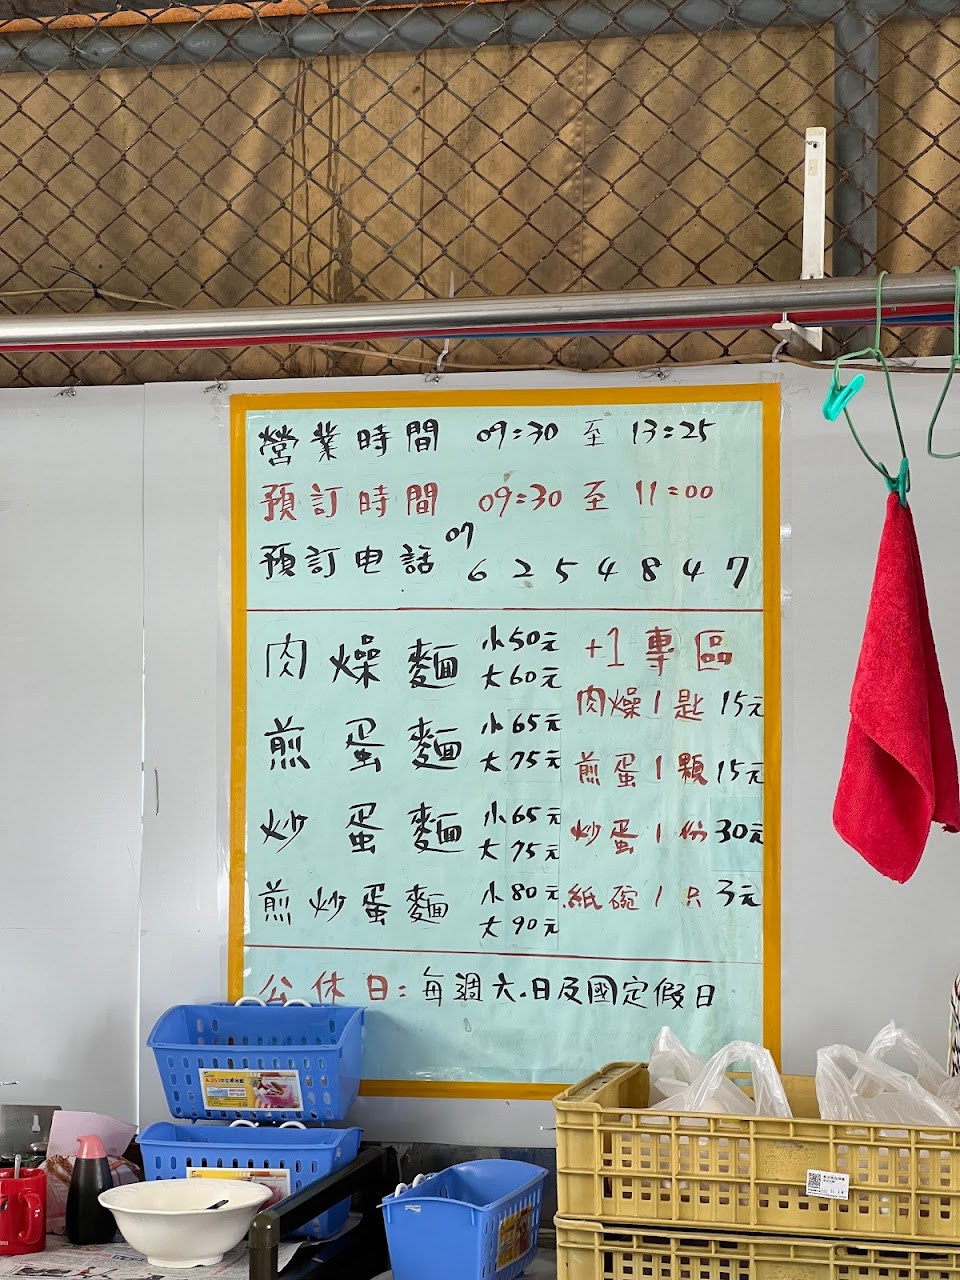 營業時間 09:30 至 13:25
預訂時間 09:30 至 11:00
預訂电話 07 6254847
肉燥麵 小50元
大60元
煎蛋麵 小65元
大75元
炒蛋麵 小65元
大75元
煎炒蛋麵 小80元
大90元
+1專區
肉燥1匙 15元
煎蛋1顆 15元
炒蛋1份 30元
紙碗1只 3元
公休日:每週六.日及國定假日